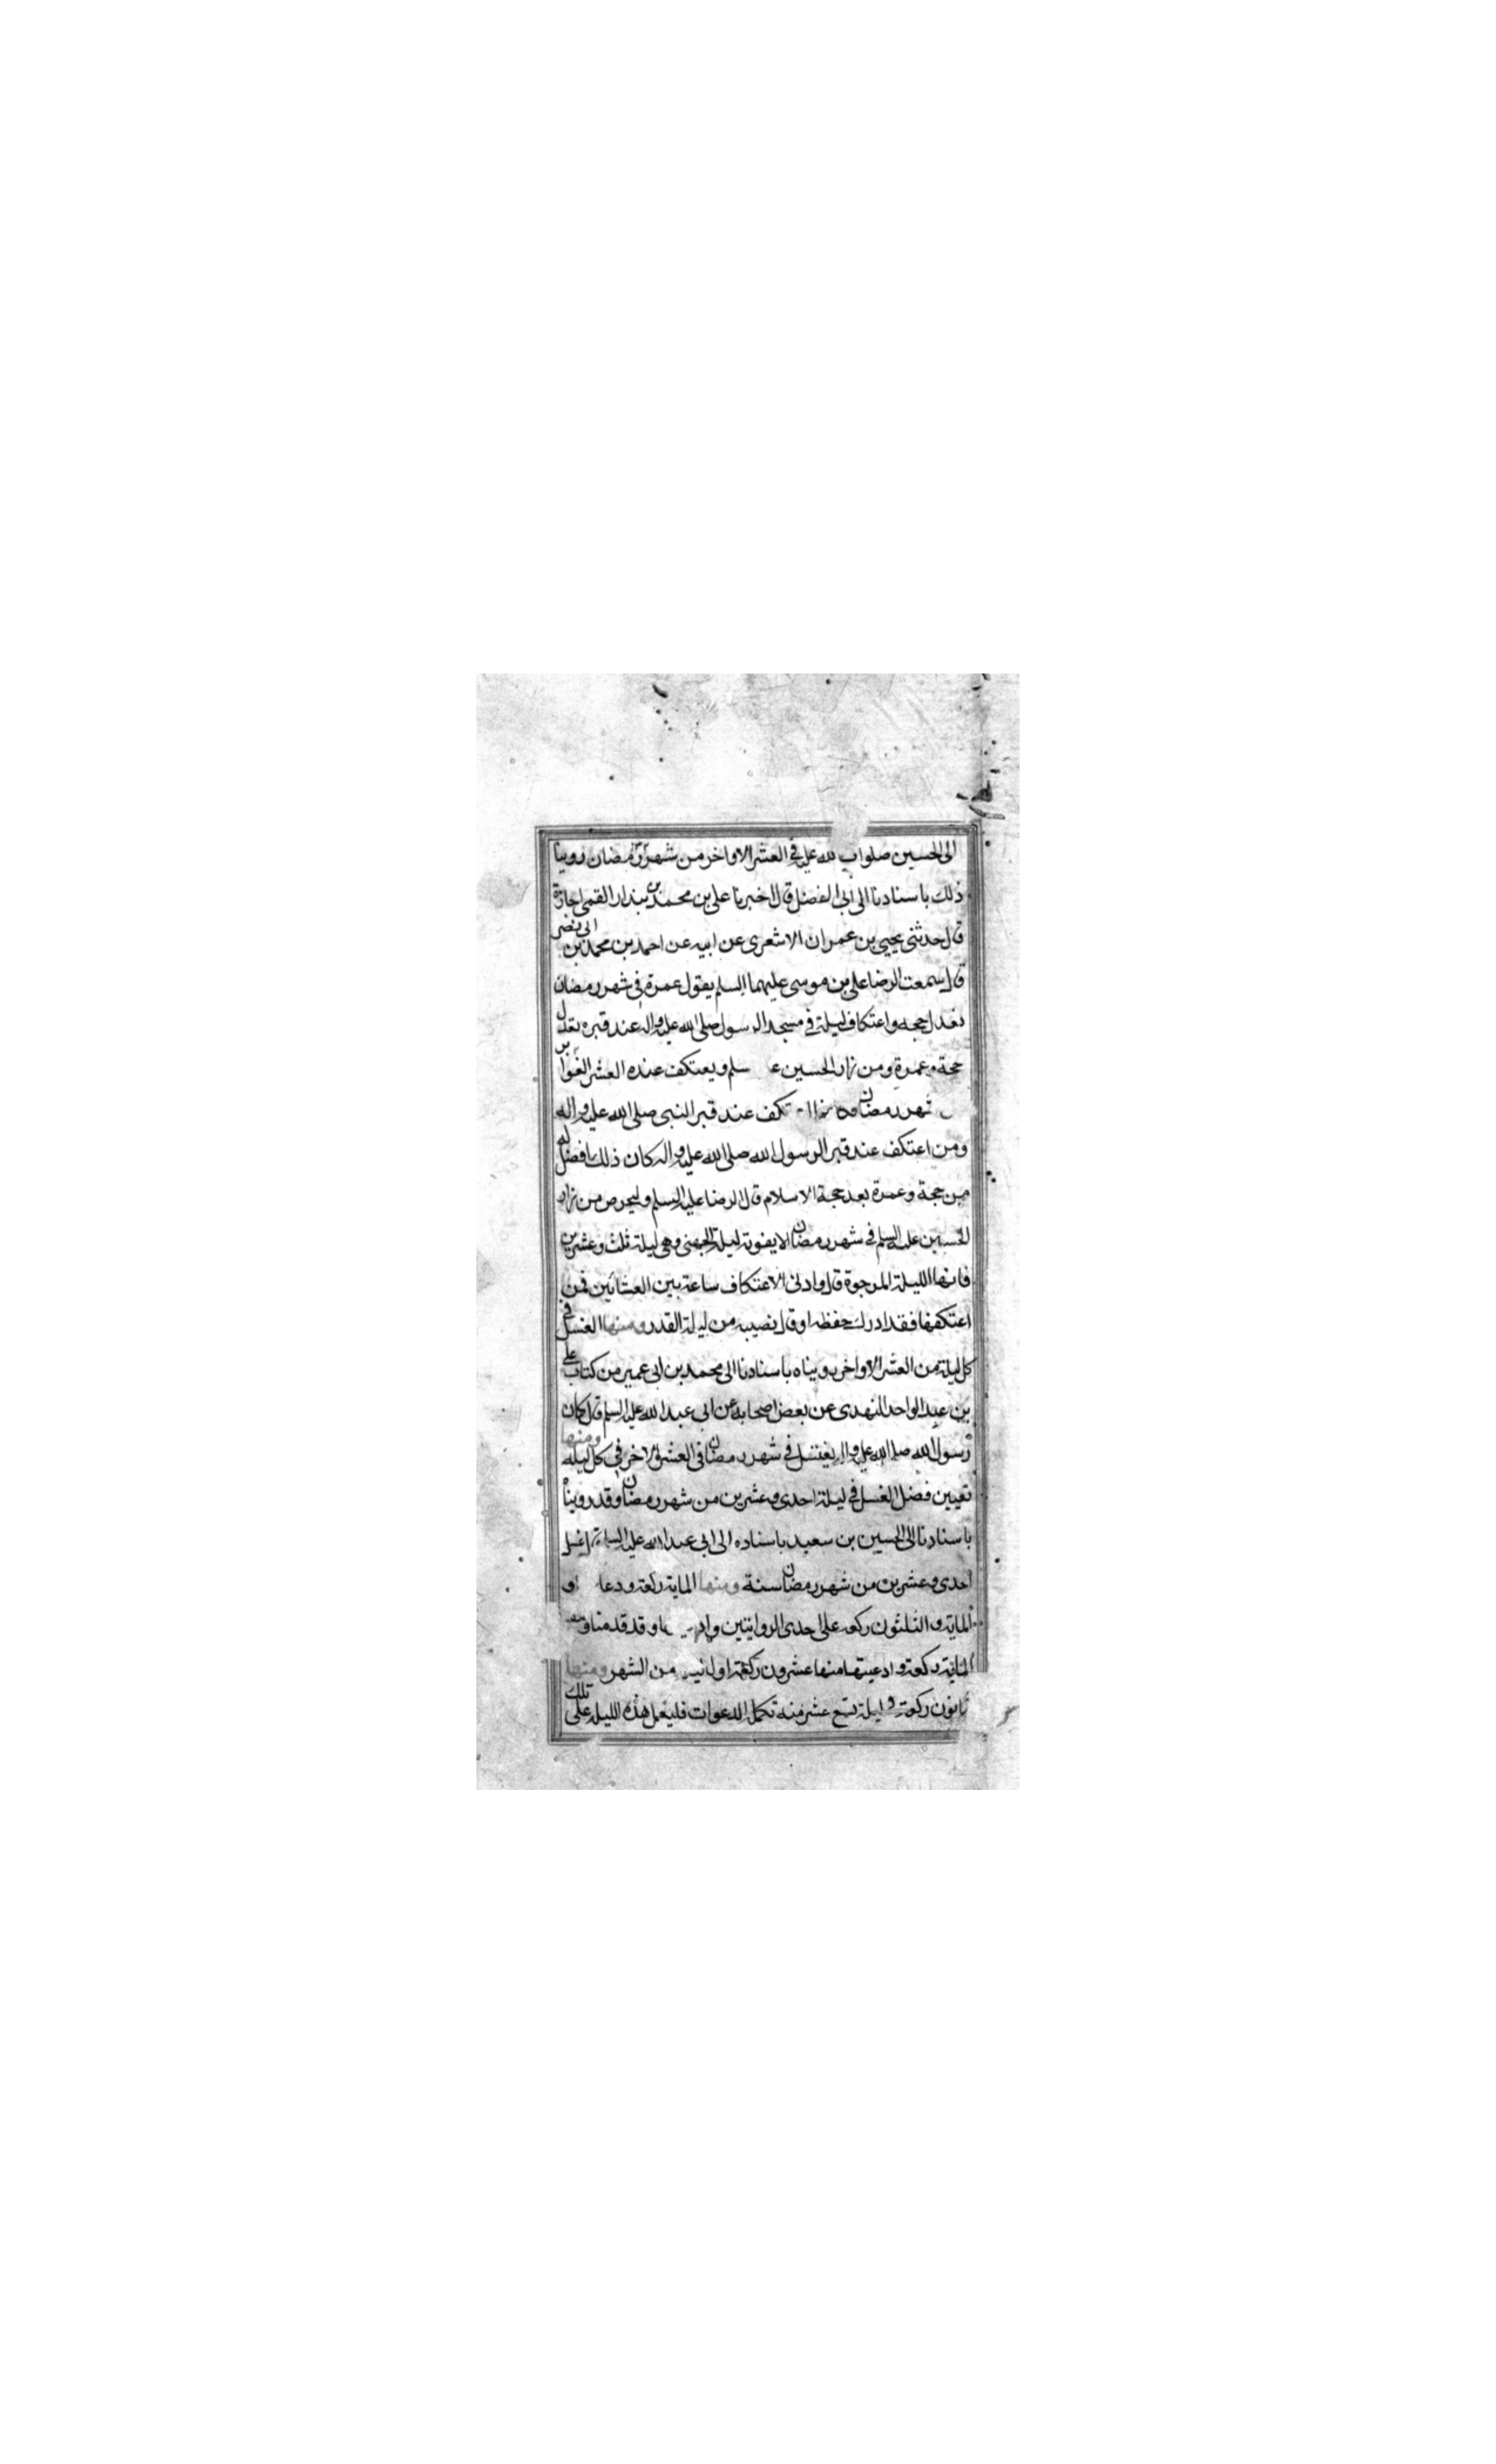 الى الحسين صلوات الله عليه في العشر الاواخر من شهر رمضان روينا
ذلك باسنادنا الى ابى المفضل قال اخبرنا على بن محمد بن بندار القمى اجازة
قال حدثنى يحيى بن عمران الاشعرى عن ابيه عن احمد بن محمد بن ابى نصر
قال سمعت الرضا على بن موسى عليهما السلم يقول عمرة فى شهر رمضان
تعدل حجه واعتكاف ليلة في مسجد الرسول صلى الله عليه واله عند قبره يعدل
حجة وعمرة ومن زار الحسين سلم ويعتكف عنده العشر الغوابر
شهر رمضان تكف عند قبر النبى صلى الله عليه واله
ومن اعتكف عند قبر الرسول الله صلى الله عليه واله كان ذلك افضل له
من حجة وعمرة بعد حجة الاسلام قال الرضا عليه السلم وليحرص من زار
الحسين عليه السلم في شهر رمضان الا يفوته ليلة الجهنى وهى ليلة ثلث وعشرين
فانها الليلة المرجوة قال وادنى الاعتكاف ساعة بين العشائين فمن
اعتكفها فقد ادرك حفظه او قال نصيبه من ليلة القدر ومنها الغسل في
كل ليلة من العشر الاواخر رويناه باسنادنا الى محمد بن ابى عمير من كتاب على
بن عبد الواحد النهدى عن بعض اصحابه عن ابى عبد الله عليه السلم قال كان
رسول الله صلى الله عليه واله يغتسل في شهر رمضان فى العشر الاخر في كل ليله ومنها
تعيين فضل الغسل في ليلة احدى وعشرين من شهر رمضان وقد رويناه
باسنادنا الى الحسين بن سعيد باسناده الى ابى عبد الله عليه السلم غسل
احدى وعشرين من شهر رمضان سنة ومنها الماية ركعة ودعا او
الماية والثلثون ركعه على احدى الروايتين وقد قدمنا
الماية ركعة وادعيتها منها عشرون ركعة اول من الشهر ومنها
ثمانون ركعة ليلة تسع عشر منه تكمل الدعوات فليعمل هذه الليله على تلك